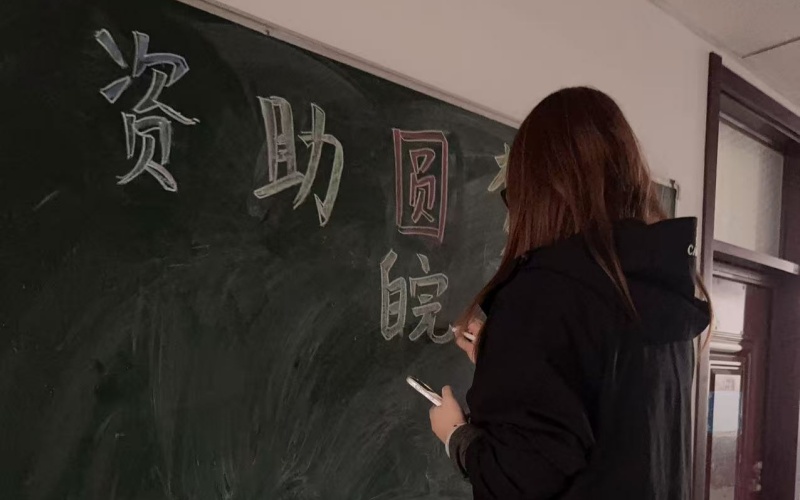 资助圆
皖